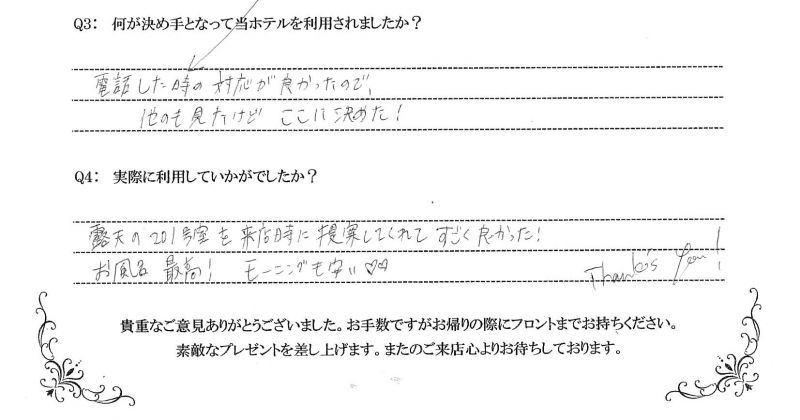 Q3: 何が決め手となって当ホテルを利用されましたか？
電話した時の対応が良かったので、
他のも見たけど ここに決めた！
Q4: 実際に利用していかがでしたか？
露天の201号室を来店時に提案してくれて すごく良かった！
お風呂 最高！ モーニングも安い♡♡ Thank's you！
貴重なご意見ありがとうございました。お手数ですがお帰りの際にフロントまでお持ちください。
素敵なプレゼントを差し上げます。またのご来店心よりお待ちしております。